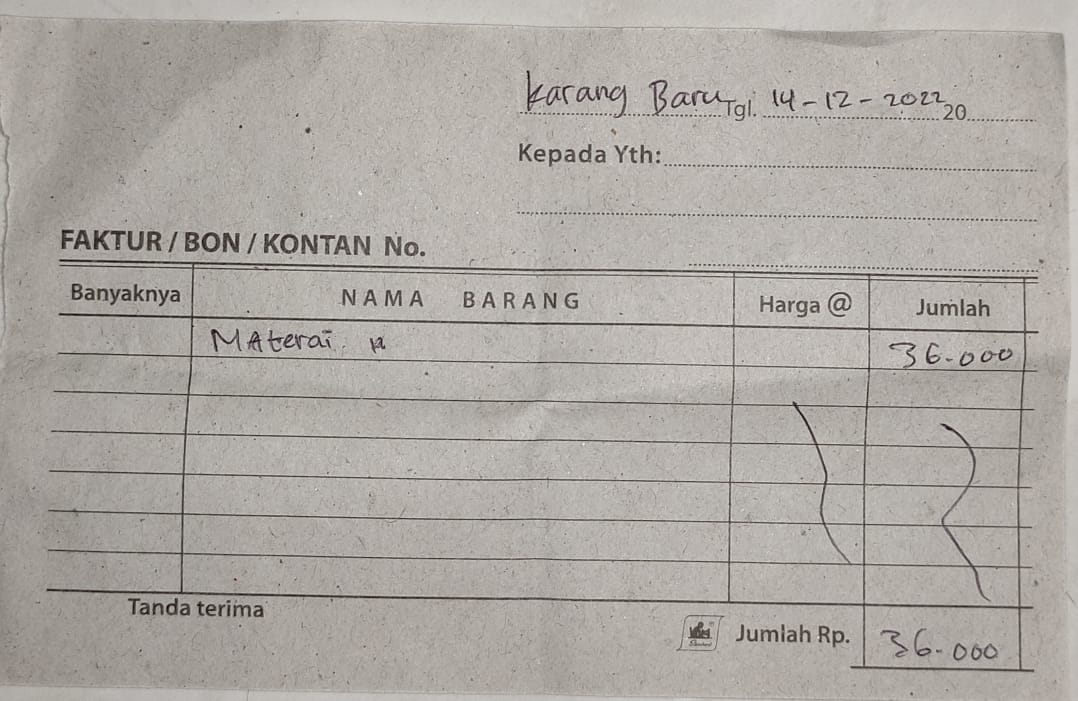 Karang Baru Tgl. 14-12-2022 20
Kepada Yth:
FAKTUR / BON / KONTAN No.
Banyaknya NAMA BARANG Harga @ Jumlah
MAterai 36.000
Tanda terima
Jumlah Rp. 36.000